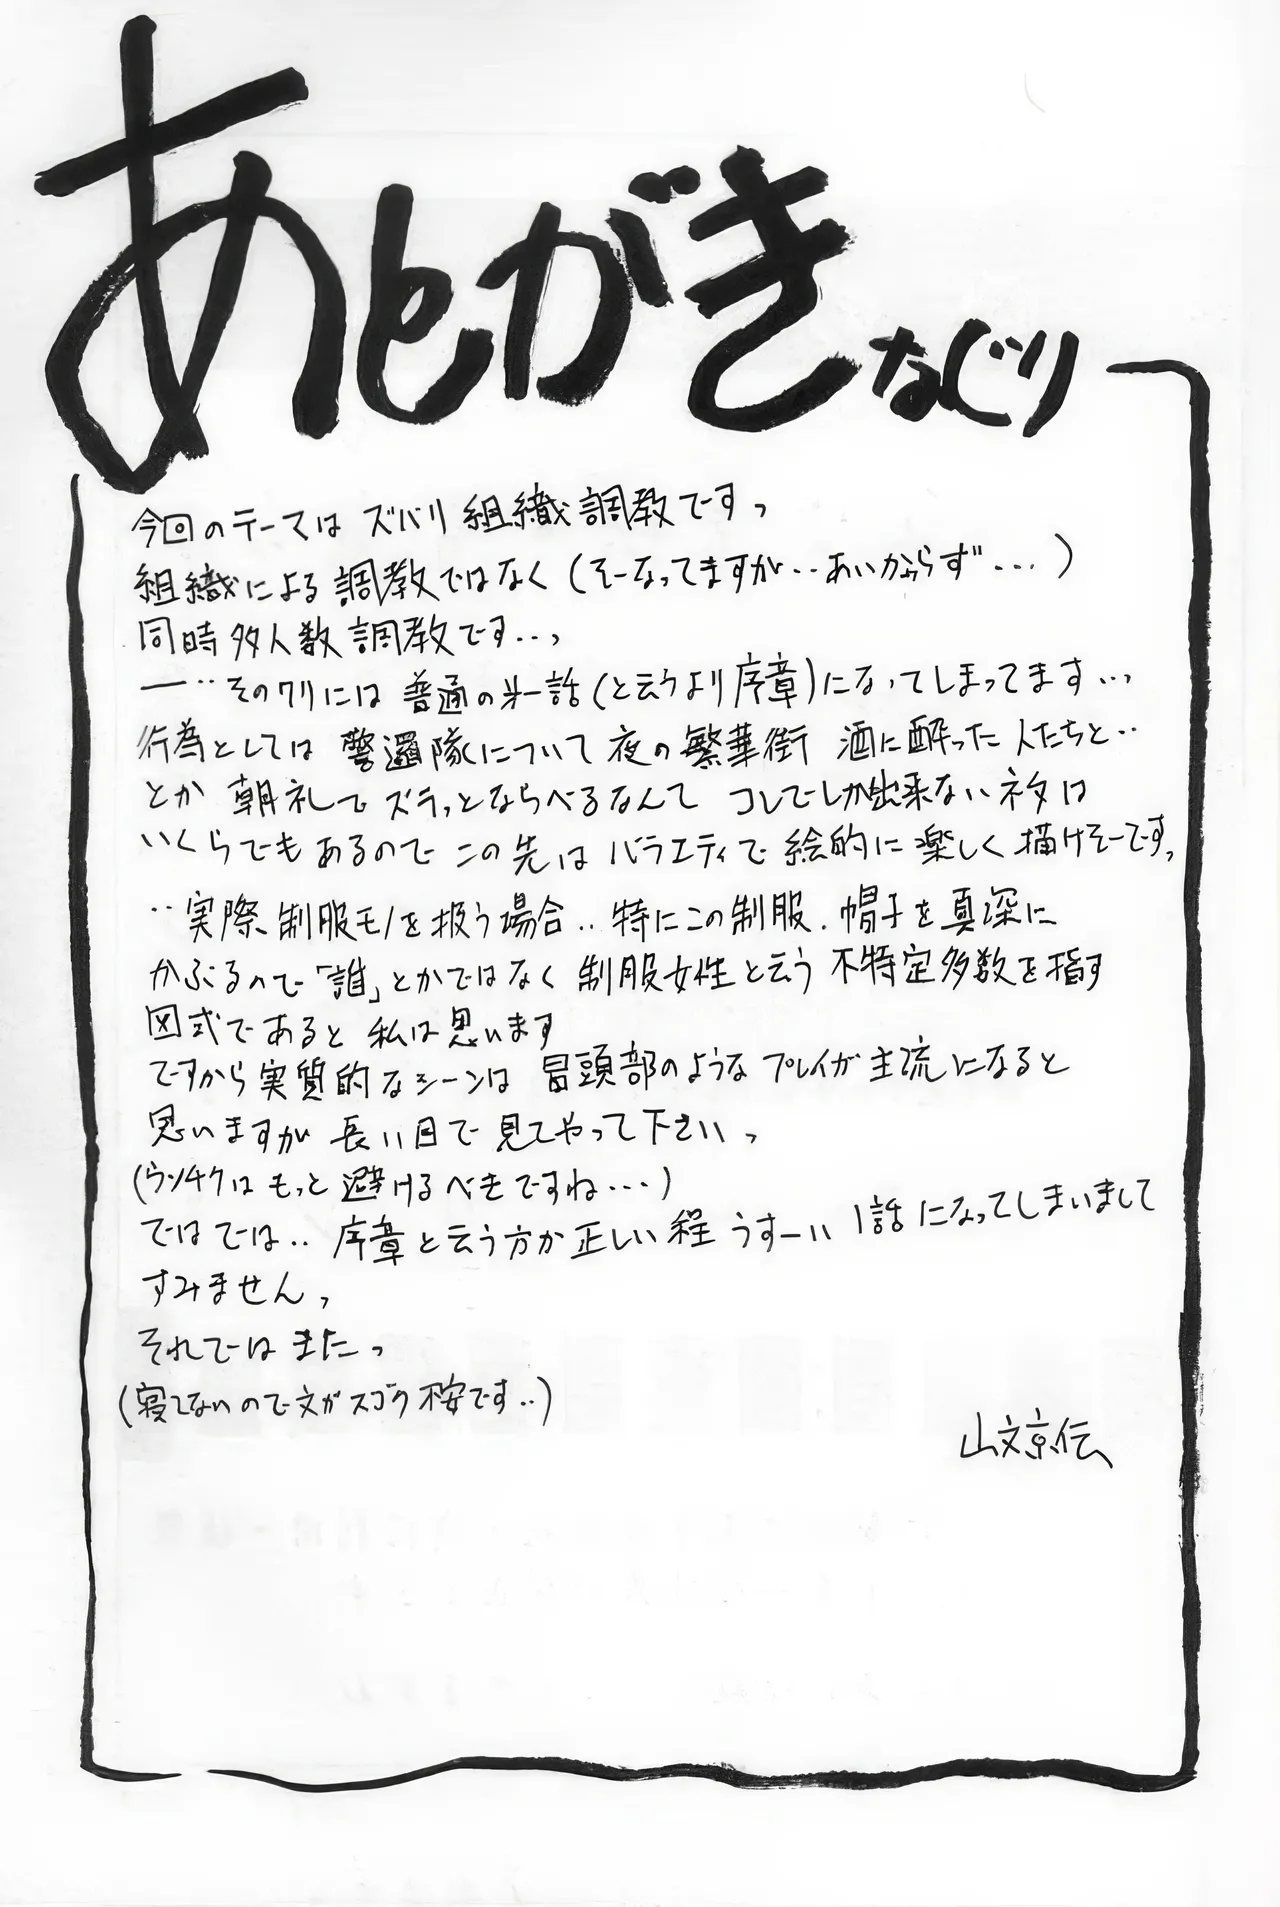 あとがきなぐり
今回のテーマは ズバリ 組織調教です、
組織による調教ではなく(そーなってますが‥あいかわらず…)
同時多人数調教です‥、
ー‥そのワリには 普通の㐧一話(と云うより序章)になってしまってます…、
行為としては 警邏隊について 夜の繁華街 酒に酔った人たちと‥
とか 朝礼で ズラっとならべるなんて コレでしか出来ないネタは
いくらでもあるので この先は バラエティで 絵的に楽しく描けそーです、
‥実際 制服モノを扱う場合‥特にこの制服.帽子を真深に
かぶるので「誰」とかではなく 制服女性と云う 不特定多数を指す
図式であると 私は思います
ですから実質的なシーンは 冒頭部のようなプレイが主流になると
思いますが 長い目で見てやって下さい、
(ウンチクは もっと避けるべきですね…)
ではでは‥ 序章と云う方が正しい程 うすーい 1話になってしまいまして
すみません、
それでは また、
(寝てないので文がスゴク不安です‥)
山文京伝